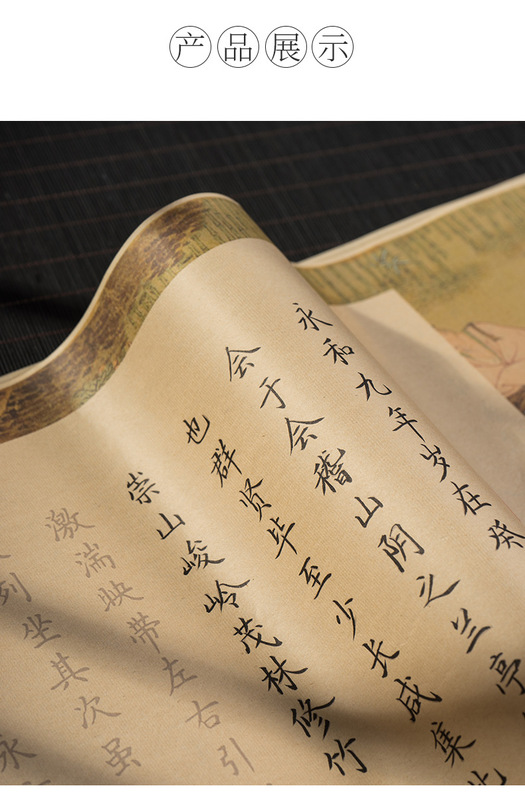 产品展示
永和九年岁在
会于会稽山阴之兰亭
也群贤毕至少长咸集此
崇山峻岭茂林修竹
激湍映带左右引
列坐其次虽